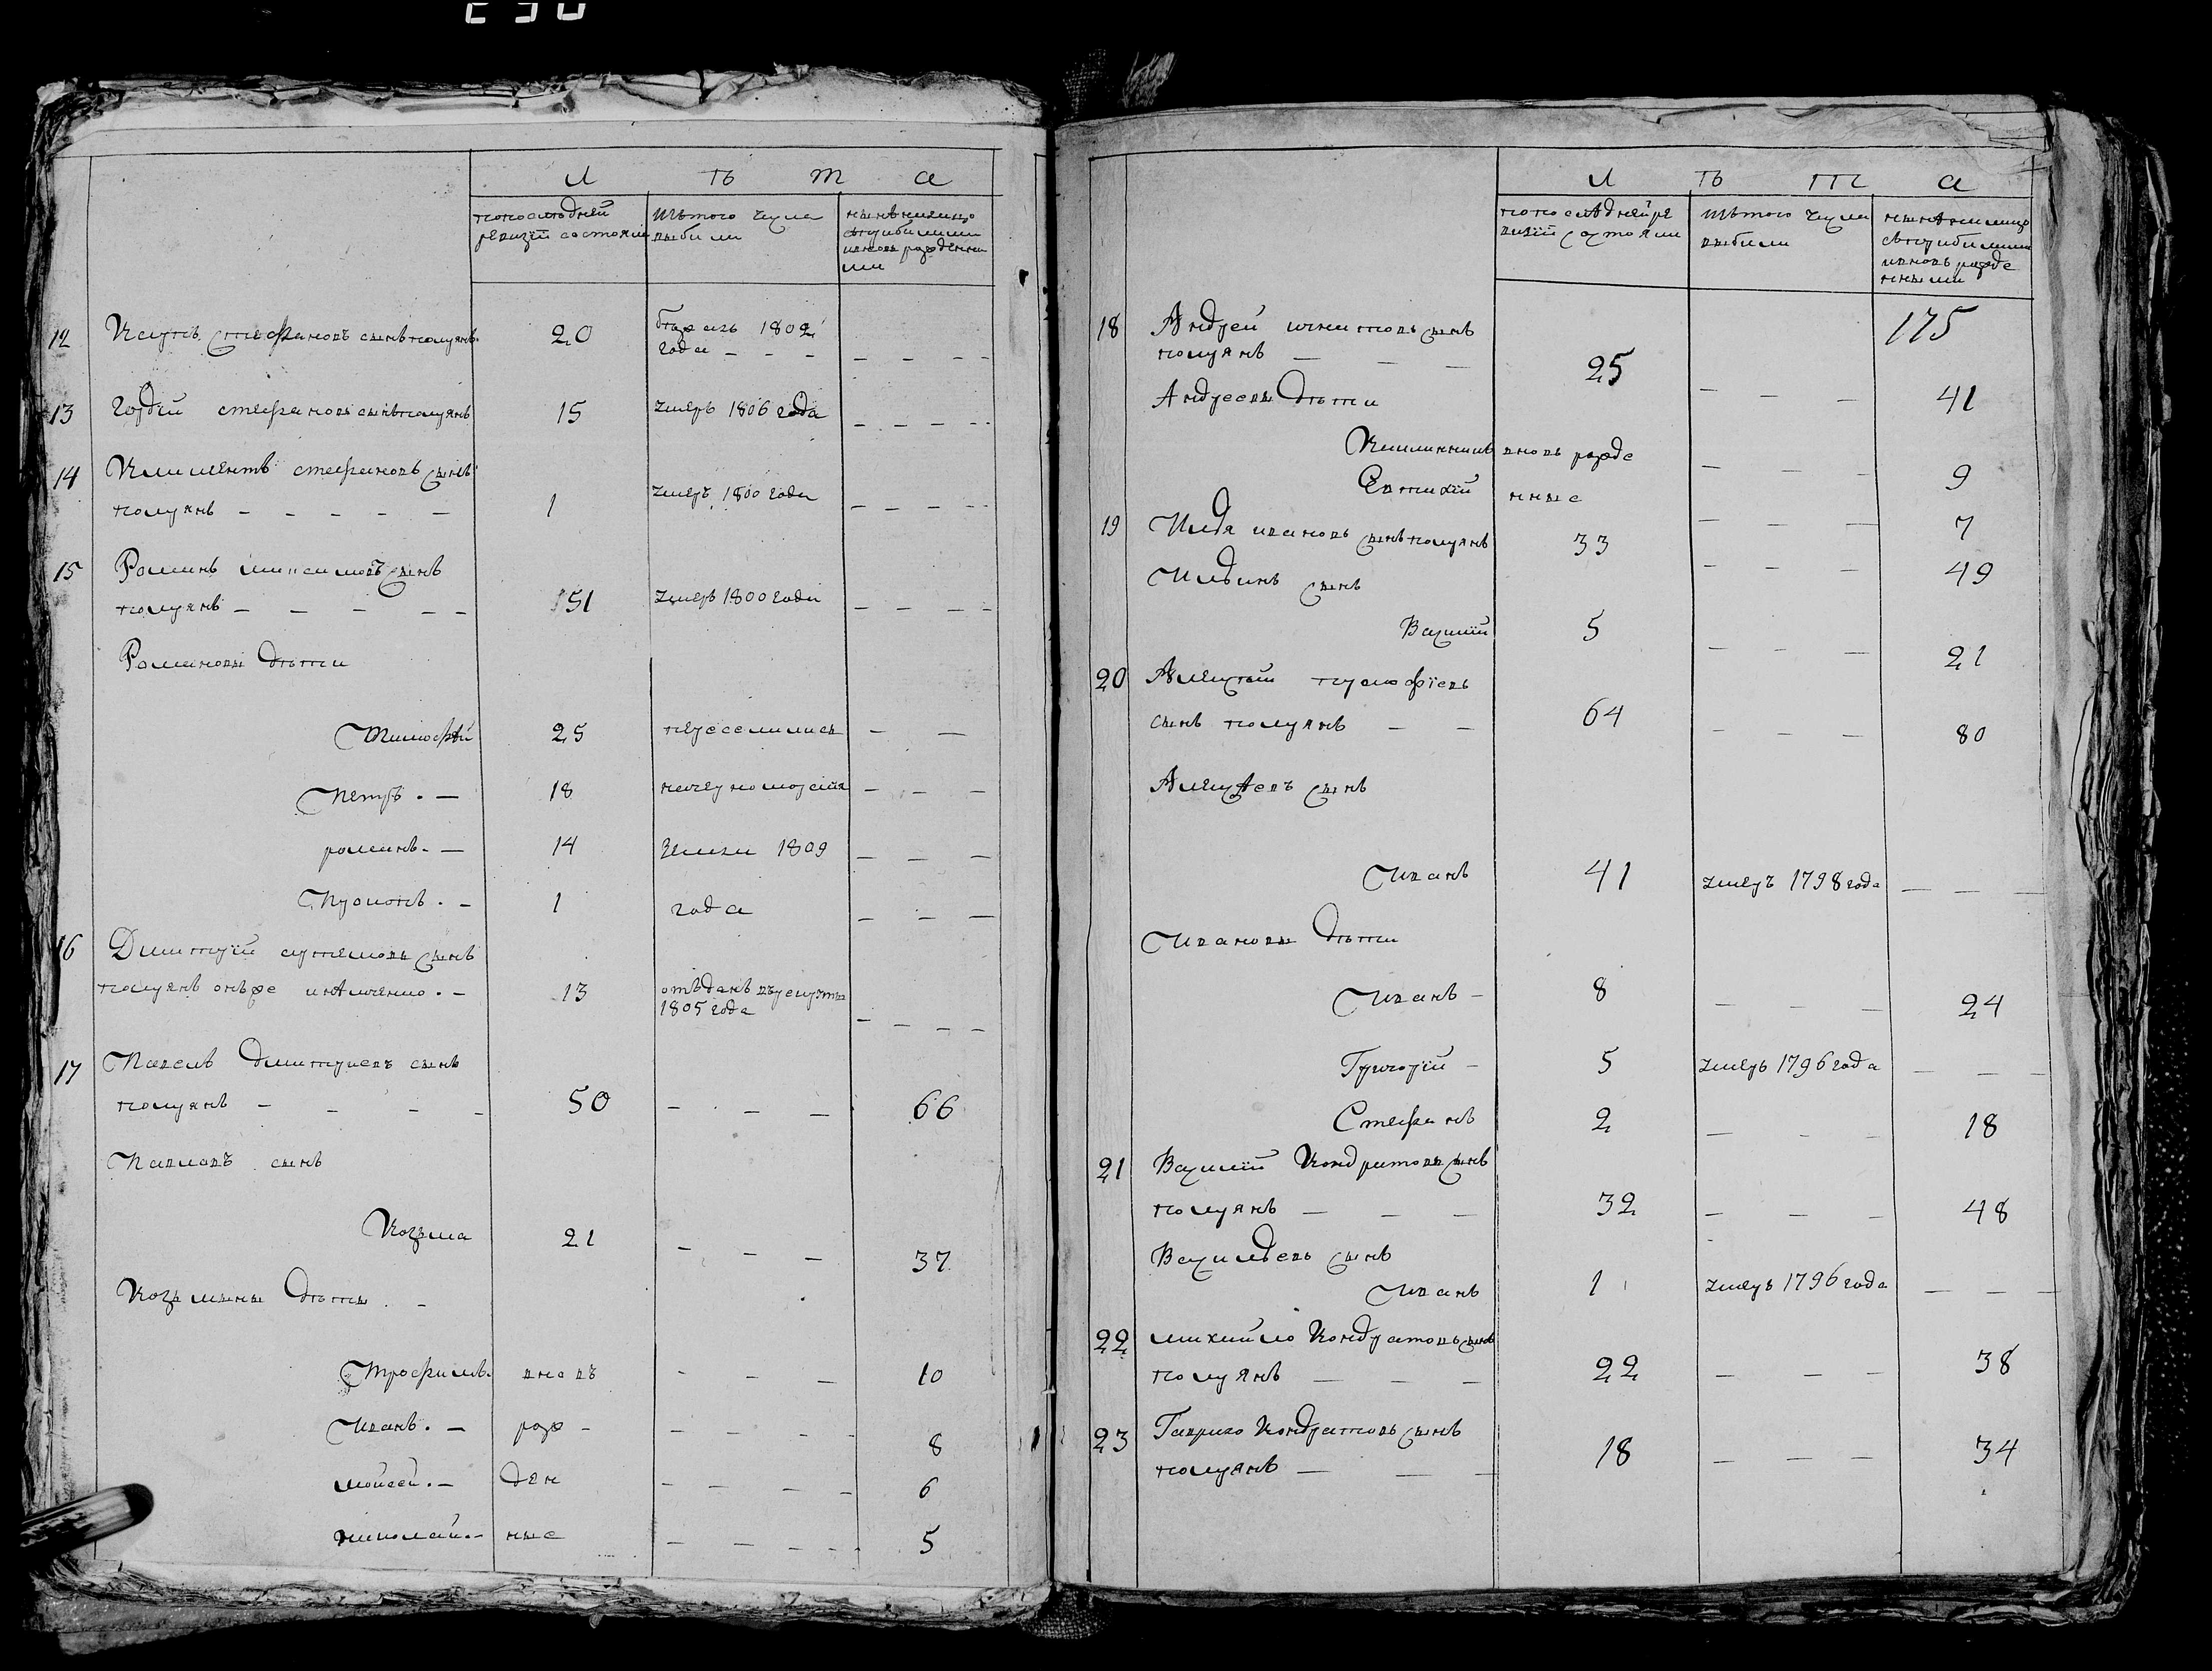 л ѣ т а
попоследней
ревизïи состояли
изътого числа
выбыли
ныне налицо
сприбылыми
ивновь рожденны
ми
12 Исупъ стефановъ сынъ полуянъ
20
бѣжалъ 1802
года
13 Гордѣй стефановъ сынъ полуянъ
15
умеръ 1806 года
14 Климентъ стефановъ сынъ
полуянъ
1
умеръ 1800 года
15 Романъ максимовъ сынъ
полуянъ
51
умеръ 1800 года
Романовы дѣти
Тимофѣй 25 переселились
Петръ 18 начерноморскïя
романъ 14 Земли 1809
Прокопъ 1 года
16 Дмитрïй артемовъ сынъ
полуянъ онъже
13
отъданъ врекруты
1805 года
17 Павелъ дмитриевъ сынъ
полуянъ
50 66
Павловъ сынъ
Козьма
21 37
Козьмины дѣты
Трофимъ вновъ 10
Иванъ рож 8
мойсей ден 6
николай ные 5
л ѣ т а
попоследней ре
визïй состояли
изътого числа
выбыли
ныне налицо
сприбылыми
ивновь рожде
нными
175
18 Андрей игнатовъ сынъ
полуянъ
25 41
Андреевы дѣти
Каленикъ вновь рожде 9
Евтихïй нные 7
19 Илья ивановъ сынъ полуянъ 33 49
Ильинъ сынъ
Василïй 5 21
20 Алексѣй прокофïевъ
сынъ полуянъ 64 80
Алексѣевъ сынъ
Иванъ 41 умеръ 1798 года
Ивановы дѣти
Иванъ 8 24
Григорïй 5 умеръ 1796 года
Стефанъ 2 18
21 Василïй Кондратовъ сынъ
полуянъ 32 48
Васильевъ сынъ
Иванъ 1 умеръ 1796 года
22 михайло Кондратовъ сынъ
полуянъ 22 38
23 Гаврило Кондратовъ сынъ
полуянъ 18 34